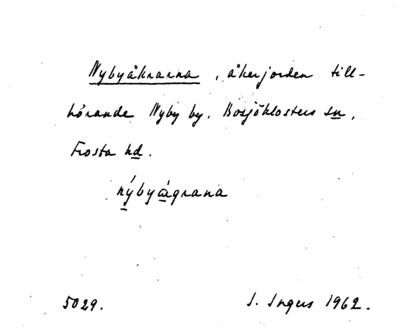 Nybyåkrarna, åkerjorden till-
hörande Nyby by. Bosjöklosters sn,
Frosta hd.
nýbyágrana
5029. I. Ingers 1962.